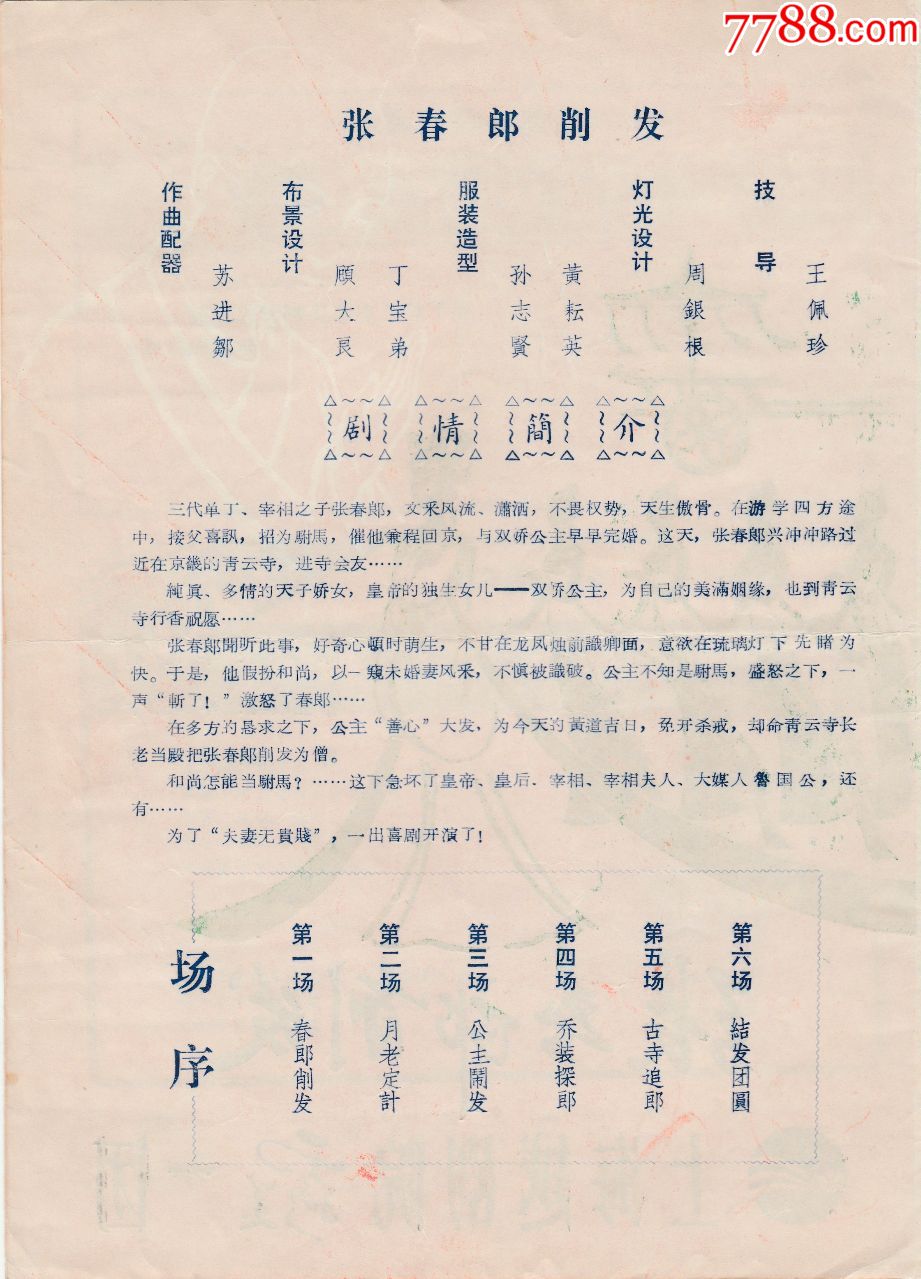 7788.com
张春郎削发
作曲配器
苏进邹
布景设计
顾大良
丁宝弟
服装造型
孙志賢
黃耘英
灯光设计
周銀根
技导
王佩珍
剧情簡介
三代单丁、宰相之子张春郎，文釆风流、瀟洒，不畏权势，天生傲骨。在游学四方途
中，接父喜訊，招为駙馬，催他兼程回京，与双娇公主早早完婚。这天，张春郎兴冲冲路过
近在京畿的青云寺，进寺会友……
純眞、多情的天子娇女，皇帝的独生女儿——双娇公主，为自己的美滿姻缘，也到青云
寺行香祝愿……
张春郎聞听此事，好奇心頓时萌生，不甘在龙凤烛前識卿面，意欲在琉璃灯下先睹为
快。于是，他假扮和尚，以一窺未婚妻风釆，不慎被識破。公主不知是駙馬，盛怒之下，一
声“斬了！”激怒了春郎……
在多方的恳求之下，公主“善心”大发，为今天的黃道吉日，免开杀戒，却命靑云寺长
老当殿把张春郎削发为僧。
和尚怎能当駙馬？……这下急坏了皇帝、皇后、宰相、宰相夫人、大媒人魯国公，还
有……
为了“夫妻无貴賤”，一出喜剧开演了！
场序
第一场 春郎削发
第二场 月老定計
第三场 公主鬧发
第四场 乔装探郎
第五场 古寺追郎
第六场 結发团圓